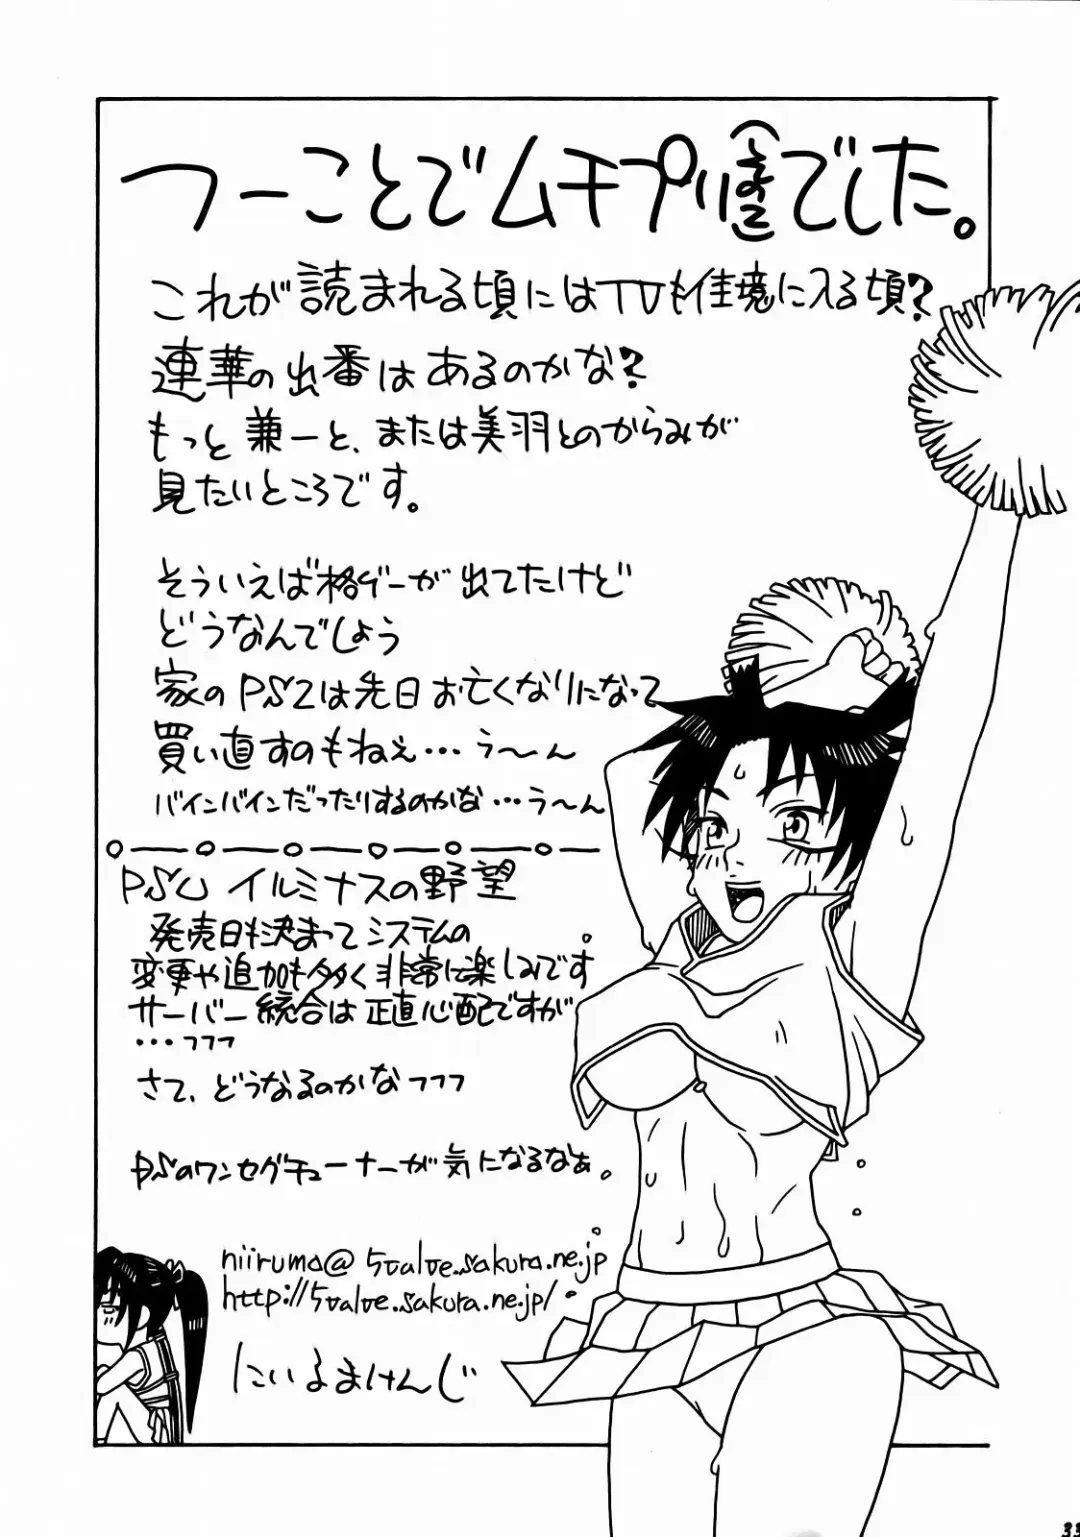 つーことでムチプリ(その2)でした。
これが読まれる頃にはTVも佳境に入る頃?
連華の出番はあるのかな?
もっと兼一と、または美羽とのからみが
見たいところです。
そういえば格ゲーが出てたけど
どうなんでしょう
家のPS2は先日お亡くなりになって
買い直すのもねぇ…う〜ん
バインバインだったりするのかな…う〜ん
PSU イルミナスの野望
発売日も決まってシステムの
変更や追加も多く非常に楽しみです。
サーバー統合は正直心配ですが
…フフフ
さて、どうなるのかなフフフ
PSのワンセグチューナーが気になるなぁ。
niiruma@5valve.sakura.ne.jp
http://5valve.sakura.ne.jp/
にいるまけんじ
33